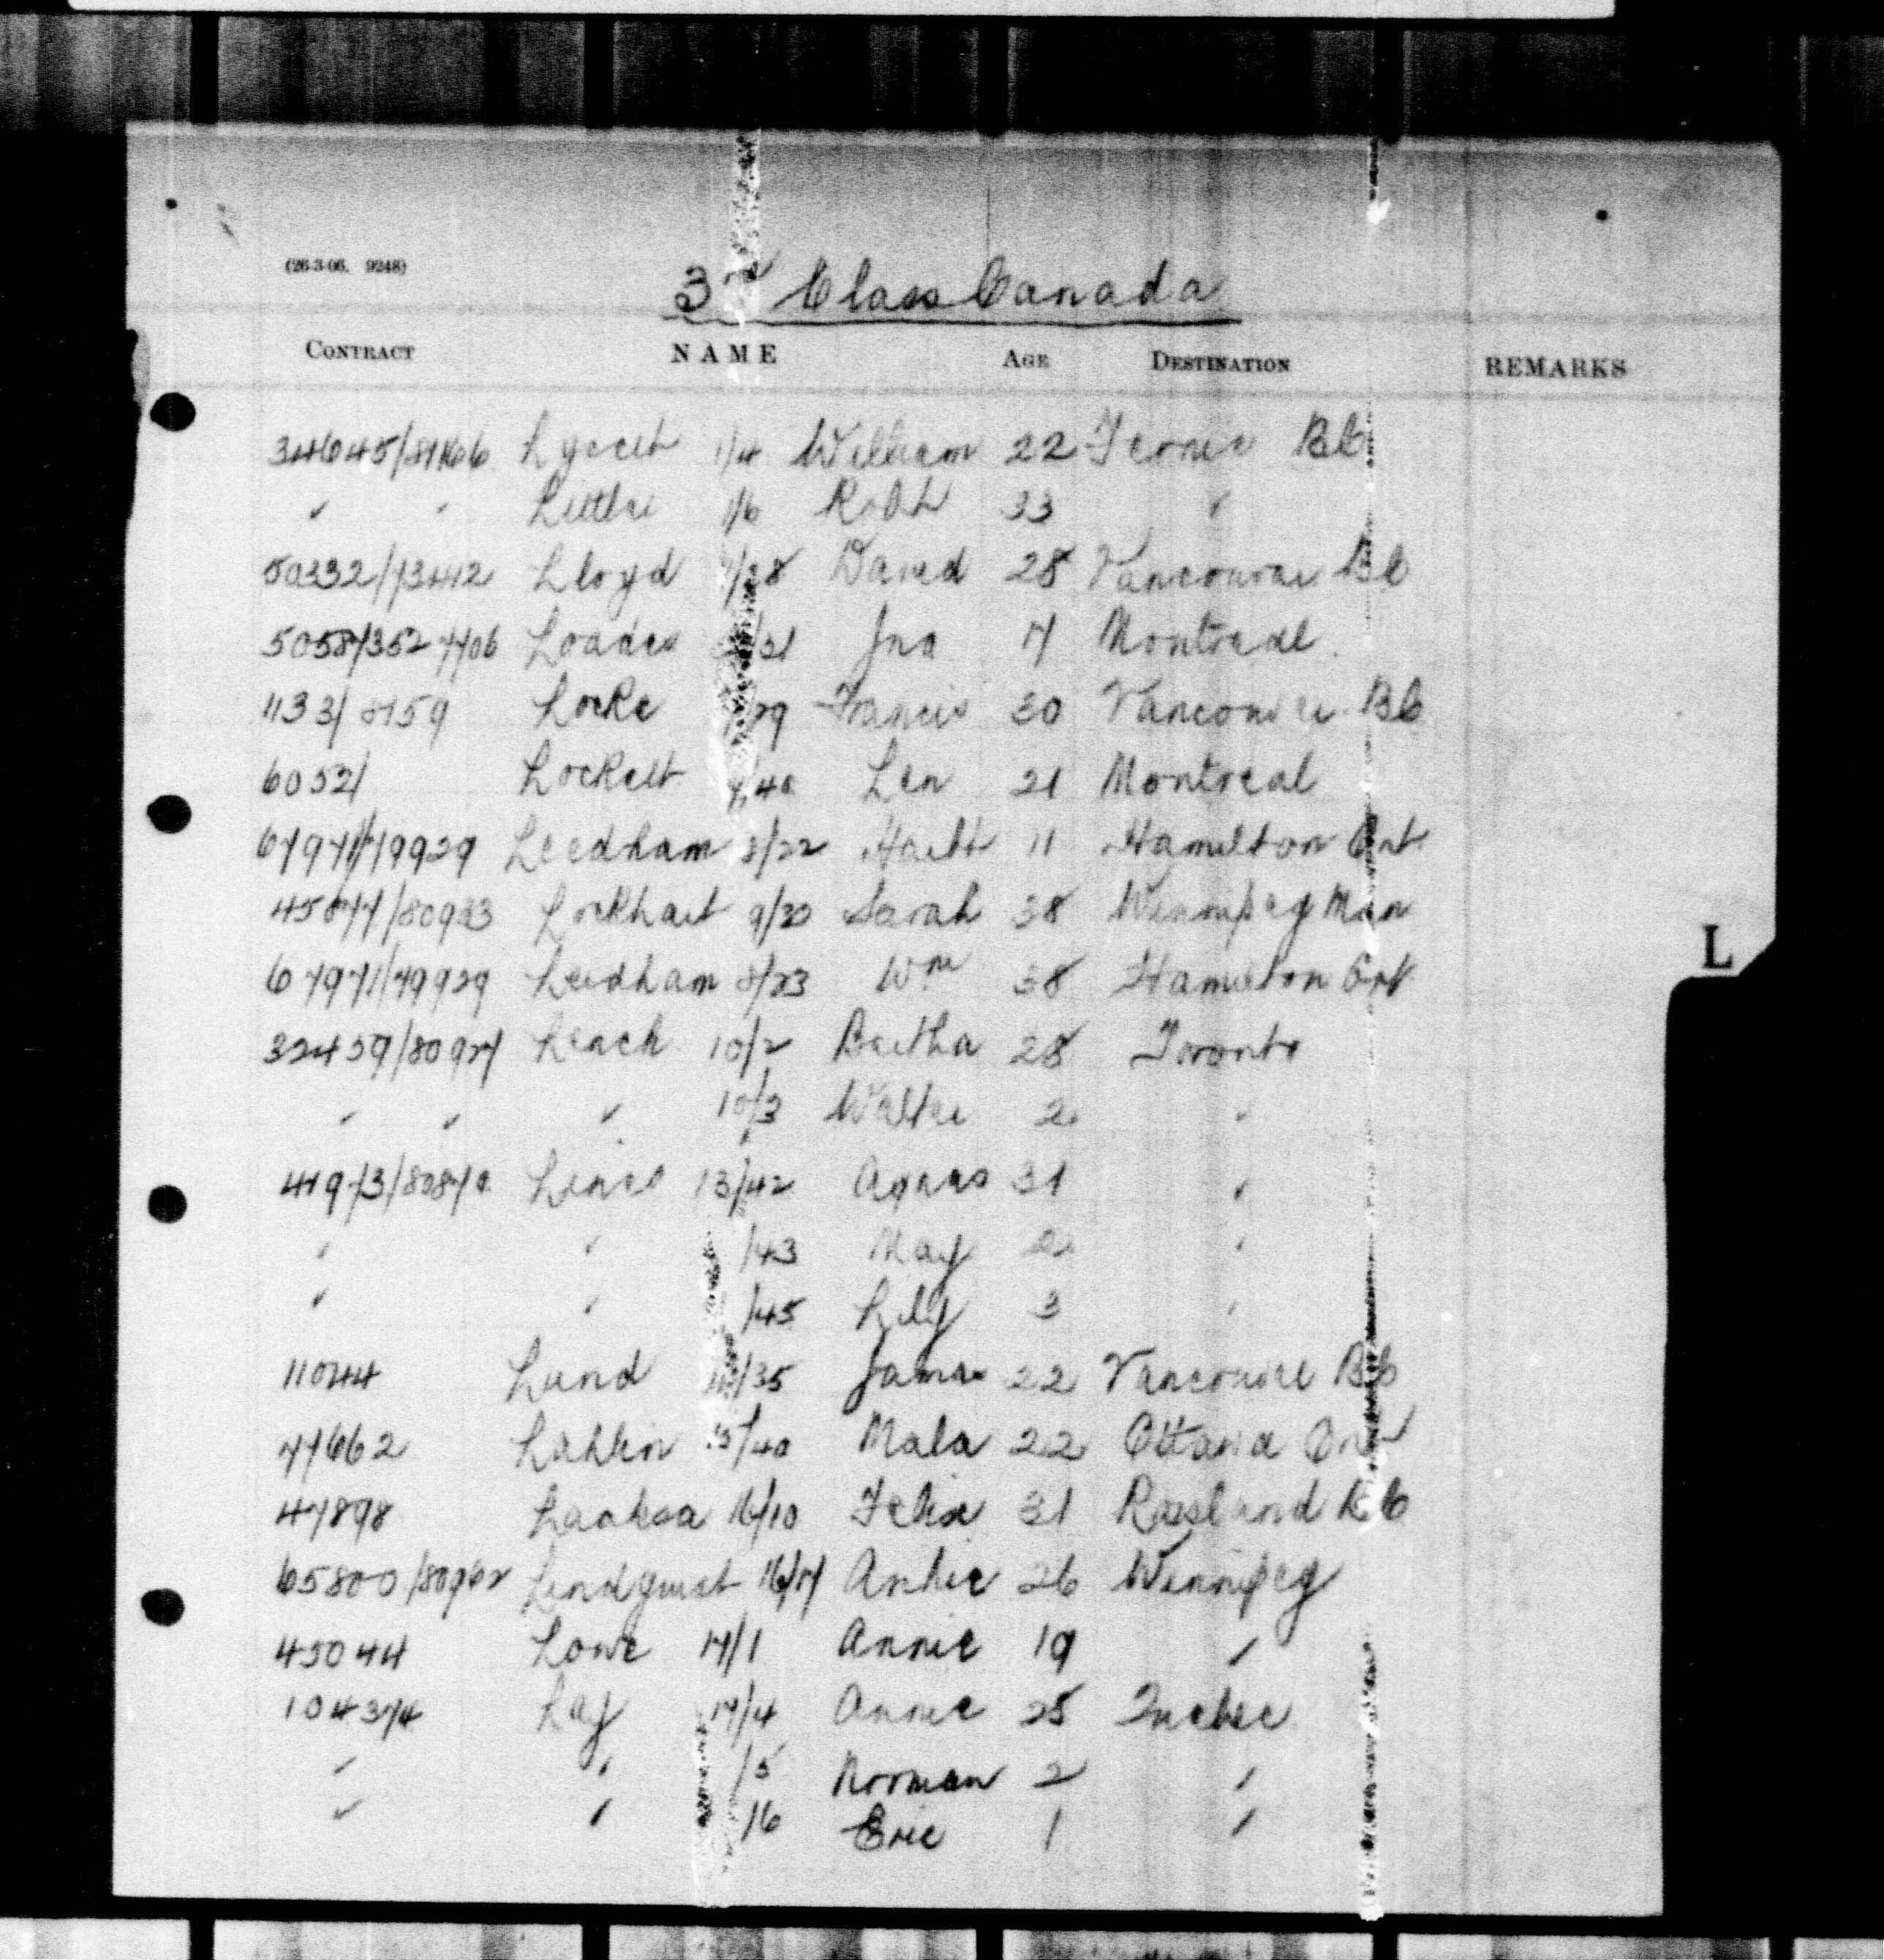 (26-3-06. 9248)
3rd Class Canada
CONTRACT NAME AGE DESTINATION REMARKS
34645/81166 Lycett 1/4 William 22 Fernie BC
" " Little 1/6 Robt 33 "
50332/73412 Lloyd /28 David 28 Vancouver BC
5058/352 7/06 Loades /31 Jno 17 Montreal
1133/8159 Locke /29 Francis 30 Vancouver BC
6052/ Lockett /40 Len 21 Montreal
67971/79929 Leedham 8/22 Harth 11 Hamilton Ont
/80933 Lockhart 9/30 Sarah 38 Winnipeg Man
67971/79929 Leedham 8/23 Wm 38 Hamilton Ont
32459/80927 Leach 10/2 Bertha 28 Toronto
" " " 10/3 Walter 2 "
41973/80870 Lines 13/42 Agnes 31 "
" " /43 May 2 "
" " /45 Lily 3 "
11044 Lund /35 James 22 Vancouver BC
77662 15/40 Mala 22 Ottawa Ont
47898 Laaksa 16/10 Felix 31 Rossland BC
65800/80962 Lindquist 16/17 26 Winnipeg
45044 Lowe 17/1 Annie 19 "
104374 Lay 17/4 Annie 25 Quebec
" " /5 Norman 2 "
" " /6 Eric 1 "
L